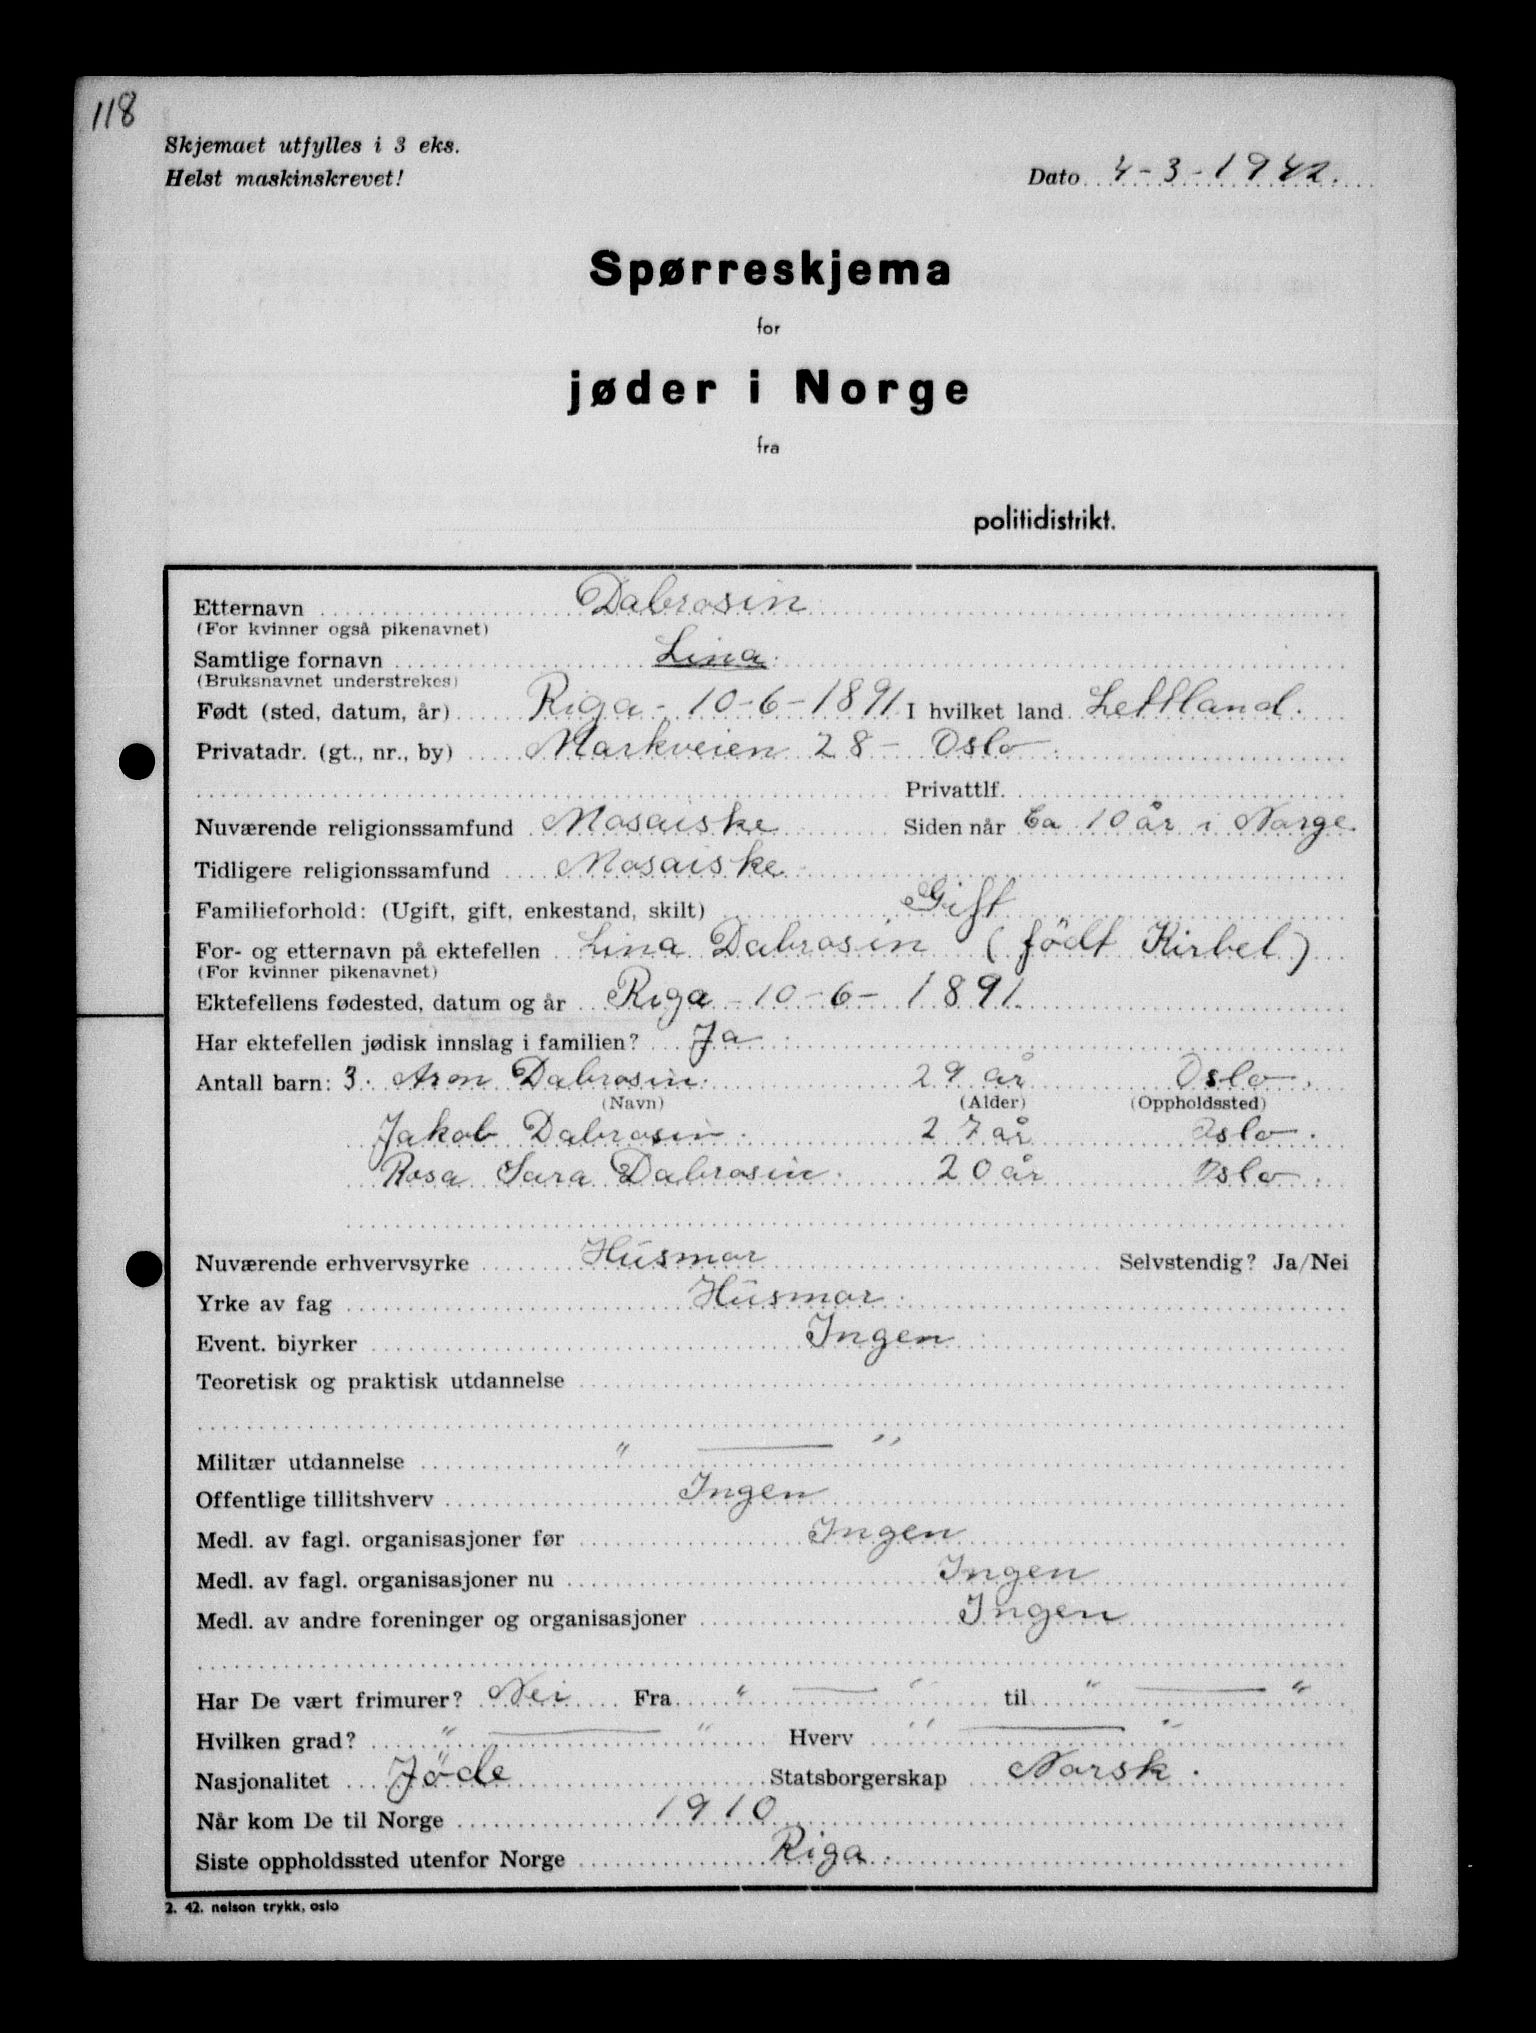 118
Skjemaet utfylles i 3 eks.
Helst maskinskrevet!
Dato 4-3-1942.
Spørreskjema
for
jøder i Norge
fra
politidistrikt.
Etternavn Dabrosin
(For kvinner også pikenavnet)
Samtlige fornavn Lina.
(Bruksnavnet understrekes)
Født (sted, datum, år) Riga - 10-6-1891 I hvilket land Lettland.
Privatadr. (gt., nr., by) Markveien 28 - Oslo.
Privattlf.
Nuværende religionssamfund Mosaiske Siden når Ca 10 år i Norge.
Tidligere religionssamfund Mosaiske
Familieforhold: (Ugift, gift, enkestand, skilt) Gift
For- og etternavn på ektefellen Lina Dabrosin (født Kirbel)
(For kvinner pikenavnet)
Ektefellens fødested, datum og år Riga - 10-6- 1891.
Har ektefellen jødisk innslag i familien? Ja
Antall barn: 3. Aron Dabrosin. 29 år Oslo.
(Navn) (Alder) (Oppholdssted)
Jakob Dabrosin. 27 år Oslo.
Rosa Sara Dabrosin. 20 år Oslo.
Nuværende erhvervsyrke Husmor Selvstendig? Ja/Nei
Yrke av fag Husmor.
Event. biyrker Ingen
Teoretisk og praktisk utdannelse
Militær utdannelse " — "
Offentlige tillitshverv Ingen
Medl. av fagl. organisasjoner før Ingen
Medl. av fagl. organisasjoner nu Ingen
Medl. av andre foreninger og organisasjoner Ingen
Har De vært frimurer? Nei Fra " — " til " — "
Hvilken grad? " — " Hverv " — "
Nasjonalitet Jøde Statsborgerskap Norsk.
Når kom De til Norge 1910
Siste oppholdssted utenfor Norge Riga.
2. 42. nelson trykk, oslo